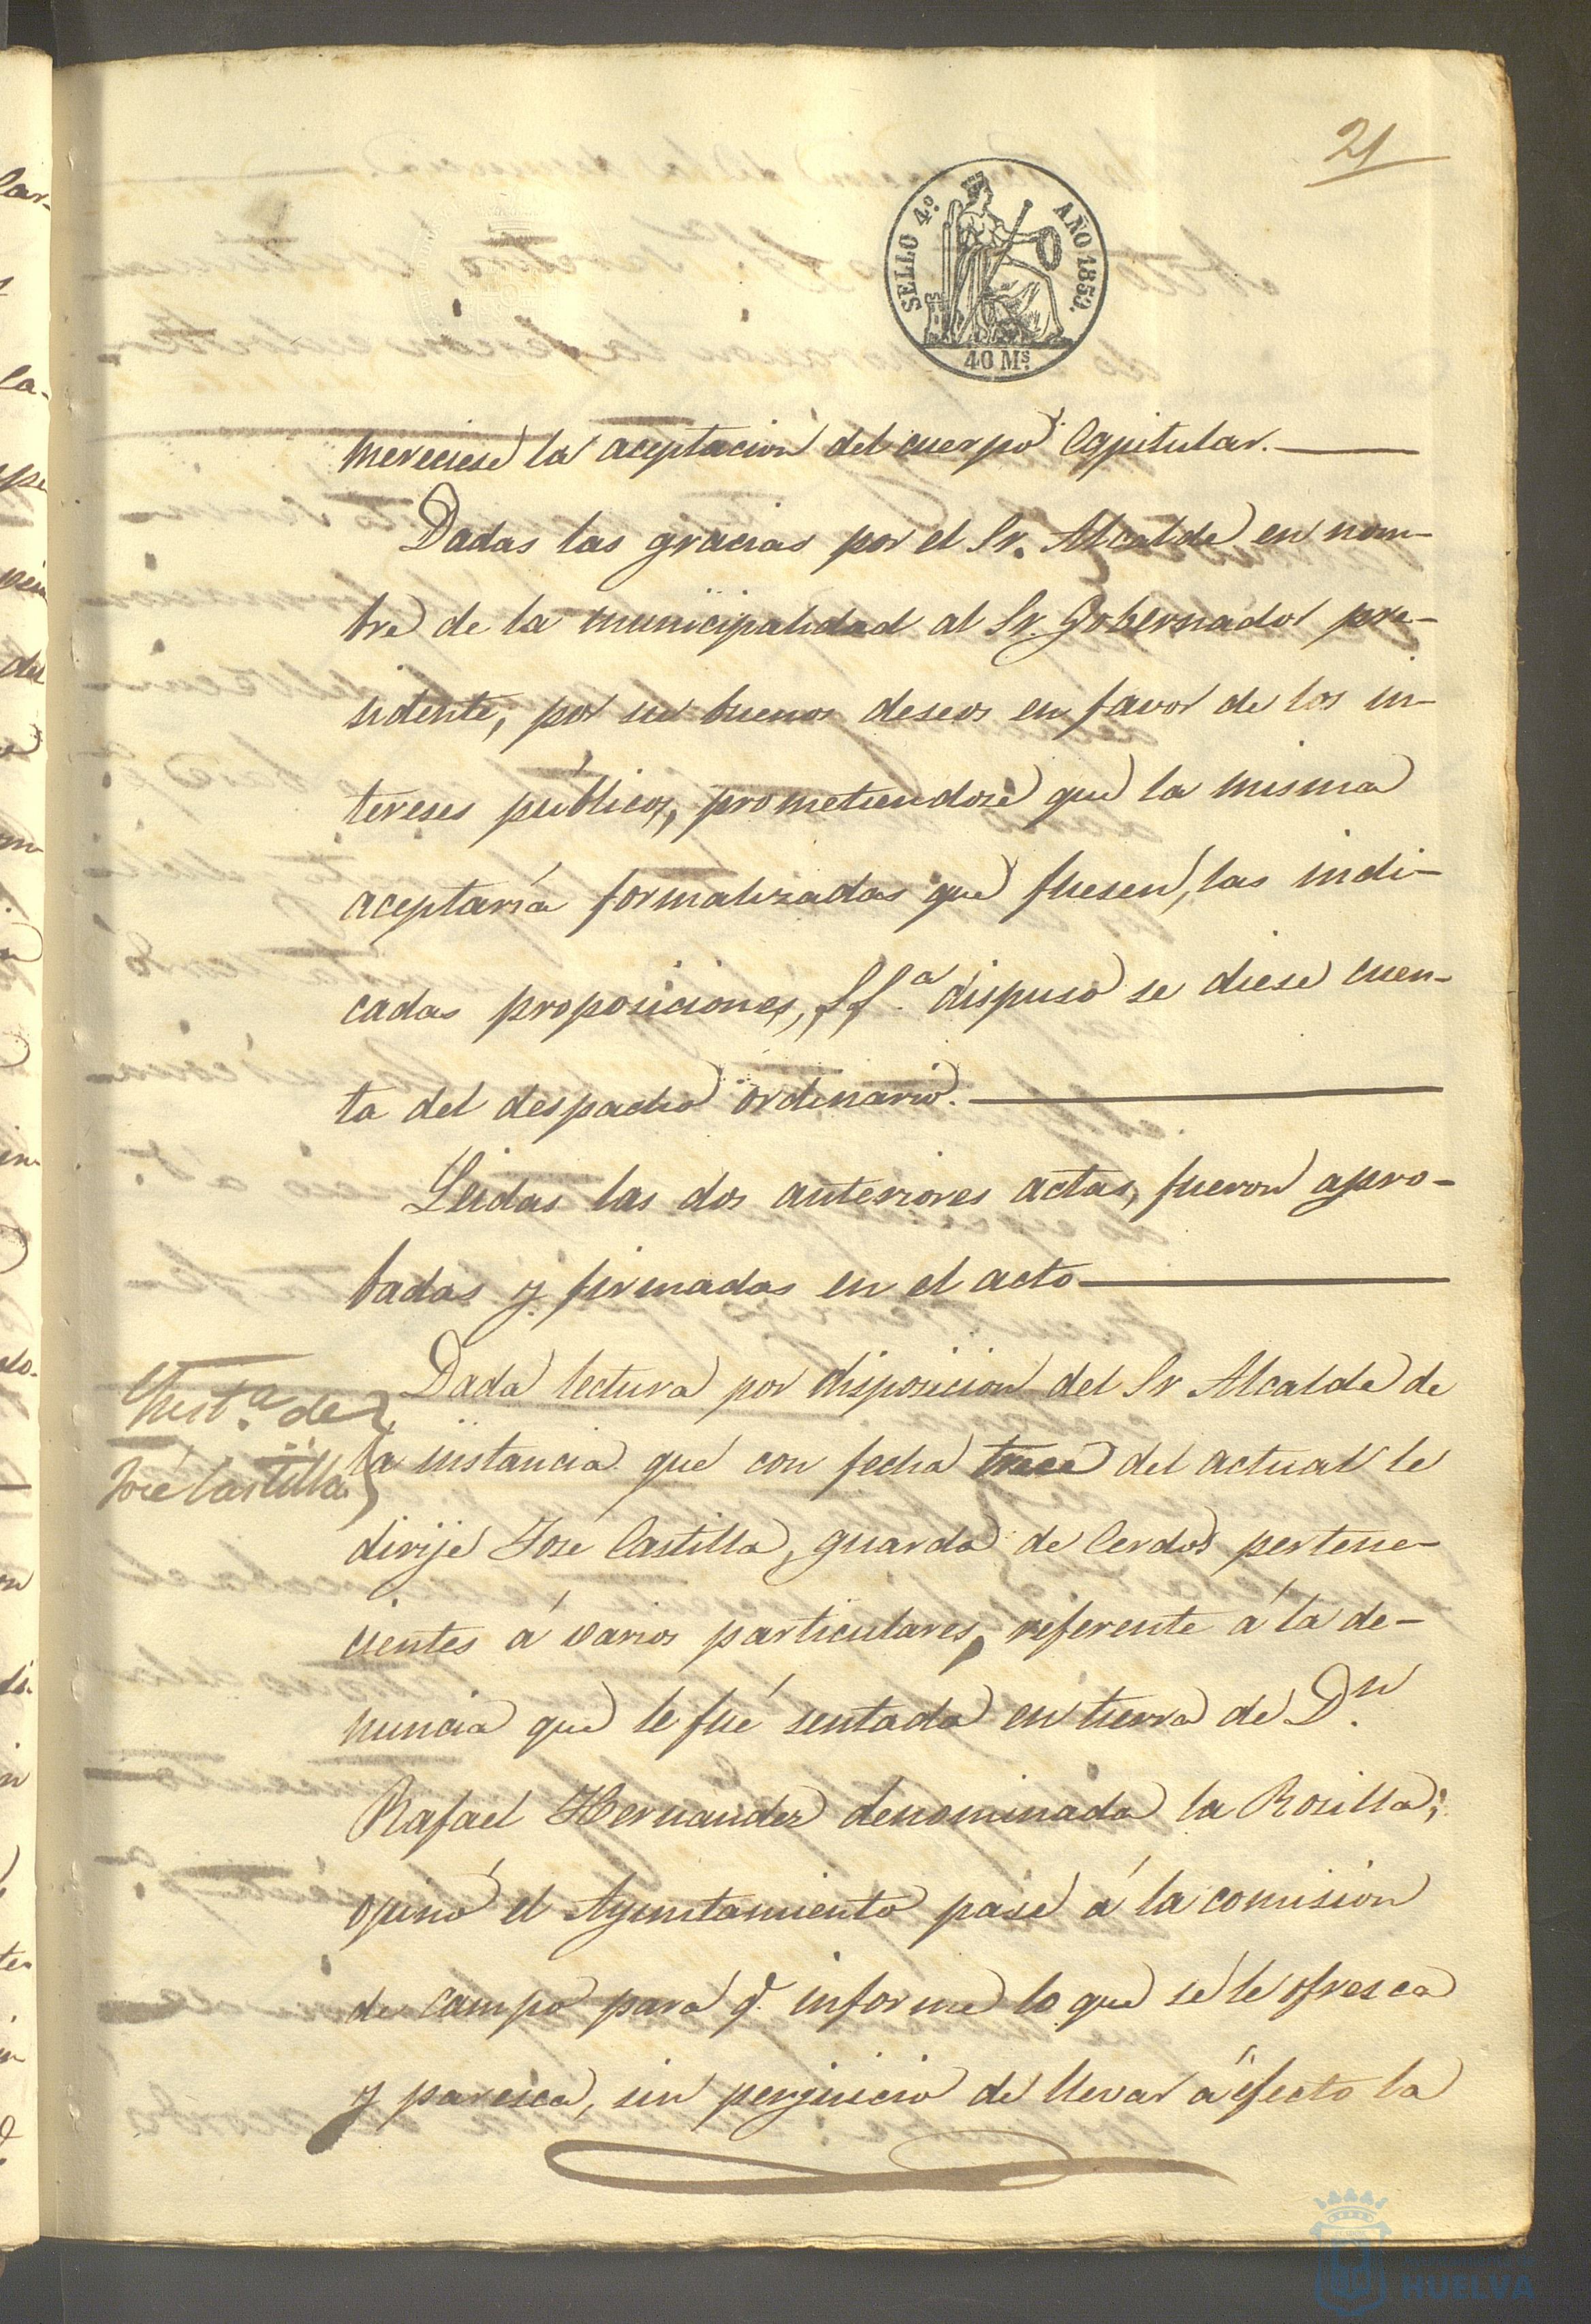 21
SELLO 4º. AÑO 1859.
40 Ms.
mereciese la aceptacion del cuerpo Capitular.
Dadas las gracias por el Sr. Alcalde en nom-
bre de la municipalidad al Sr. Gobernador pre-
sidente, por sus buenos deseos en favor de los in-
tereses públicos, prometiendose que la misma
aceptaría formalizadas que fuesen, las indi-
cadas proposiciones, SSª dispuso se diese cuen-
ta del despacho ordinario.
Leidas las dos anteriores actas, fueron apro-
badas y firmadas en el acto
Dada lectura por disposicion del Sr Alcalde de
Instª de
José Castilla
la instancia que con fecha trece del actual le
dirije José Castilla, guarda de Cerdos pertene-
cientes á varios particulares, referente á la de-
nuncia que le fué sentada en tierra de Dn.
Rafael Hernandez denominada la Rosilla;
opinó el Ayuntamiento pase á la comision
de campo para q. informe lo que se le ofresca
y paresca, sin perjuicio de llevar á efecto la
HUELVA